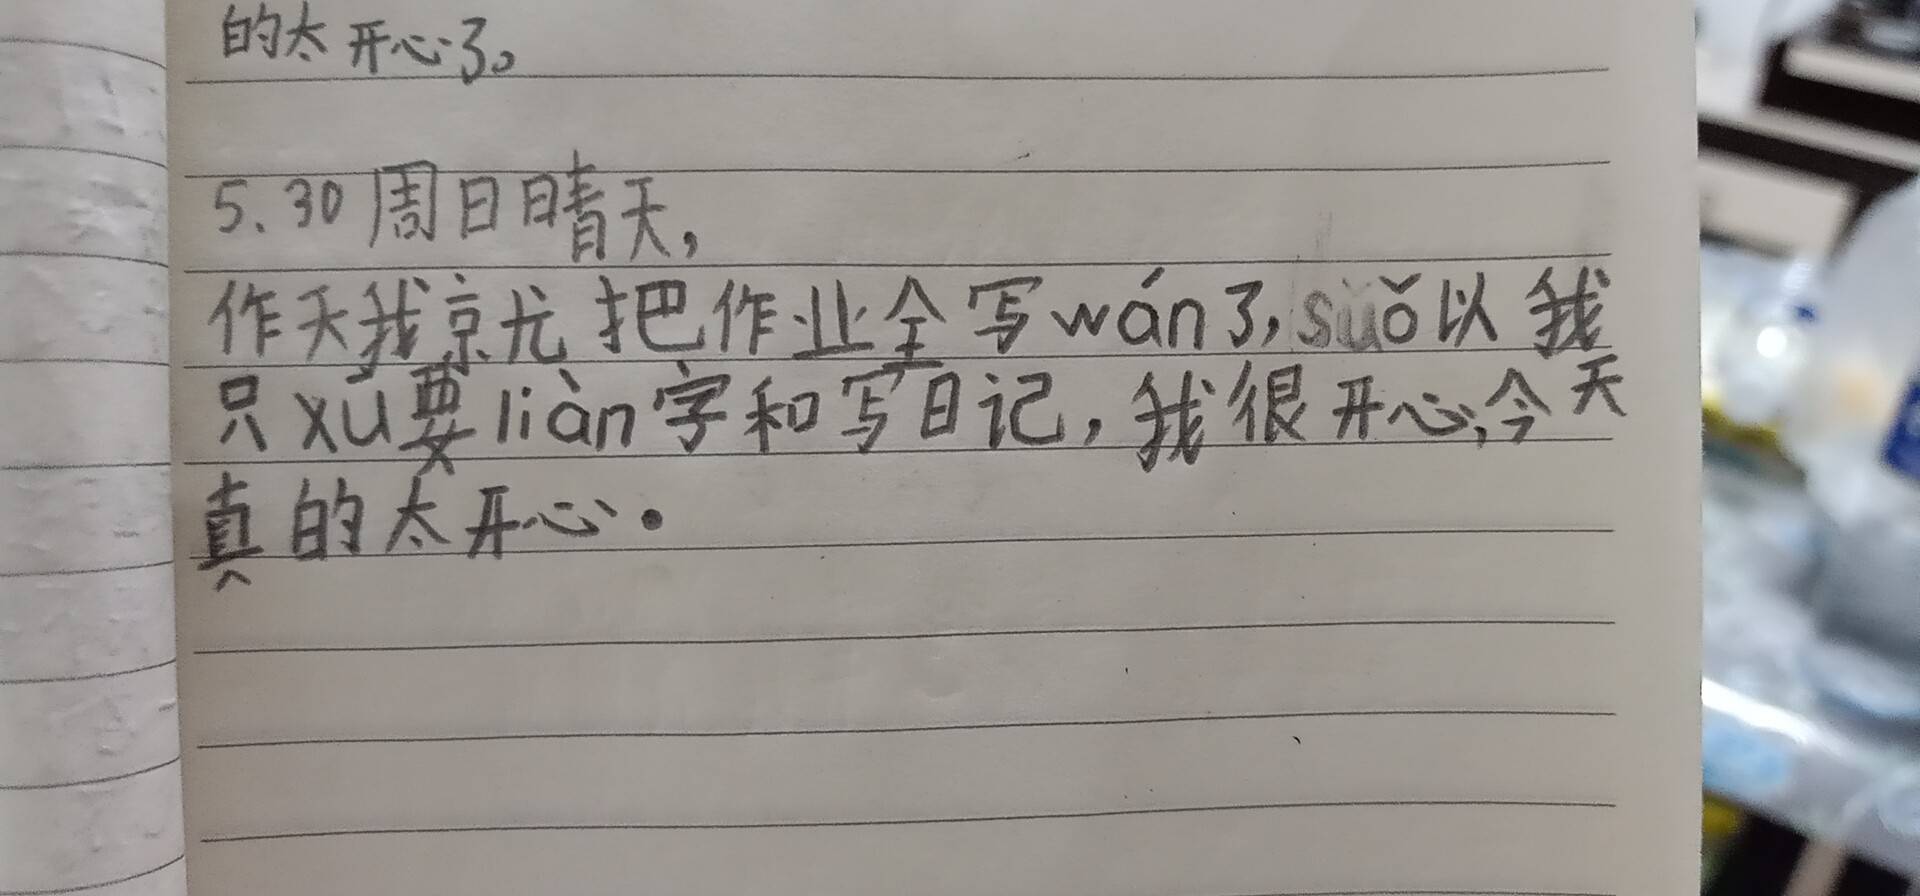 的太开心了。
5.30周日晴天，
作天我京尤把作业全写wán了，suǒ以我
只xū要liàn字和写日记，我很开心，今天
真的太开心.